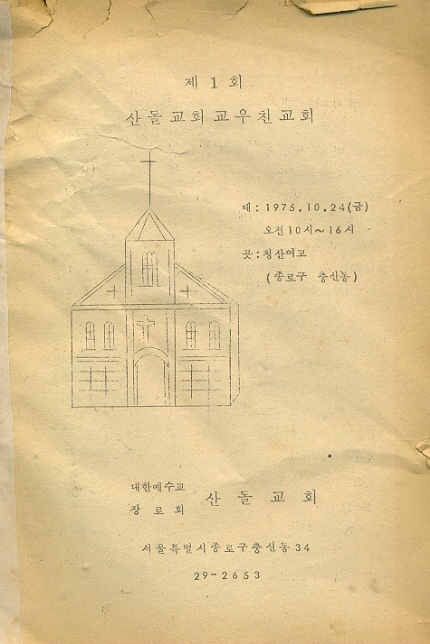 제 1 회
산돌교회교우친교회
때: 1975.10.24(금)
오전10시~16시
곳:청산여고
(종로구 충신동)
대한예수교
장로회 산돌교회
서울특별시종로구충신동34
29-2653